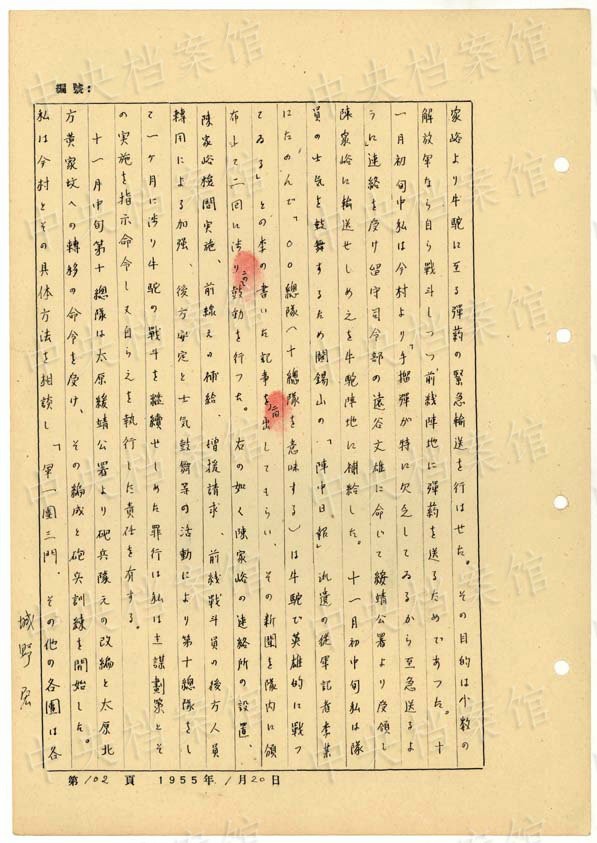 編號：
家峪より牛駝に至る彈药の緊急輸送を行はせた。その目的は少数の
解放軍なら自ら戰斗しつゝ前线陣地に彈药を送るためであつた。十
一月初旬中私は今村より「手榴彈が特に欠乏してゐるから至急送るよ
うに」連絡を受け留守司令部の遠谷文雄に命じて綏靖公署より受領し
陳家峪に輸送せしめ之を牛駝陣地に補給した。十一月初中旬私は隊
員の士気を鼓舞するため閻錫山の「陣中日報」派遣の從軍記者李某
にたのんで「〇〇總隊（十總隊を意味する）は牛駝で英雄的に戰つ
てゐる」との李の書いた記事を二回出してもらい、その新聞を隊内に頒
布して二回に涉り鼓動を行つた。右の如く陳家峪の連絡所の設置、
陳家峪後閣実施、前線えの補給、增援請求、前线戰斗員の後方人員
轉用による加強、後方安定と士気鼓舞等の活動により第十總隊をし
て一ケ月に涉り牛駝の戰斗を繼續せしめた罪行は私は主謀劃策とそ
の実施を指示命令し又自ら之を執行した責任を有する。
十一月中旬第十總隊は太原綏靖公署より砲兵隊えの改編と太原北
方黄家坟への轉移の命令を受け、その編成と砲兵訓練を開始した。
私は今村とその具体方法を相談し「軍一團三門、その他の各團は各
城野宏
第102頁 1955年1月20日
中央档案馆